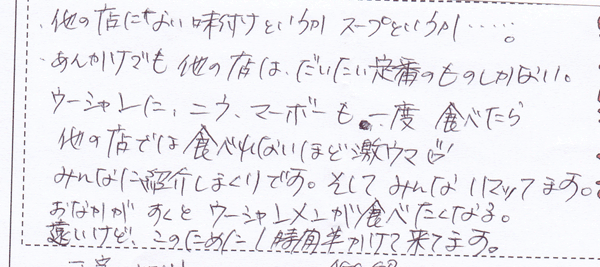 ・他の店にない味付けというか スープというか……。
・あんかけでも 他の店は、だいたい定番のものしかない。
ウーシャンに、ニラ、マーボーも 一度 食べたら
他の店では食べれないほど激ウマ
みんなに紹介しまくりです。そして みんなハマッてます。
おなかが すくと ウーシャンメンが食べたくなる。
遠いけど、このために1時間半かけて来てます。